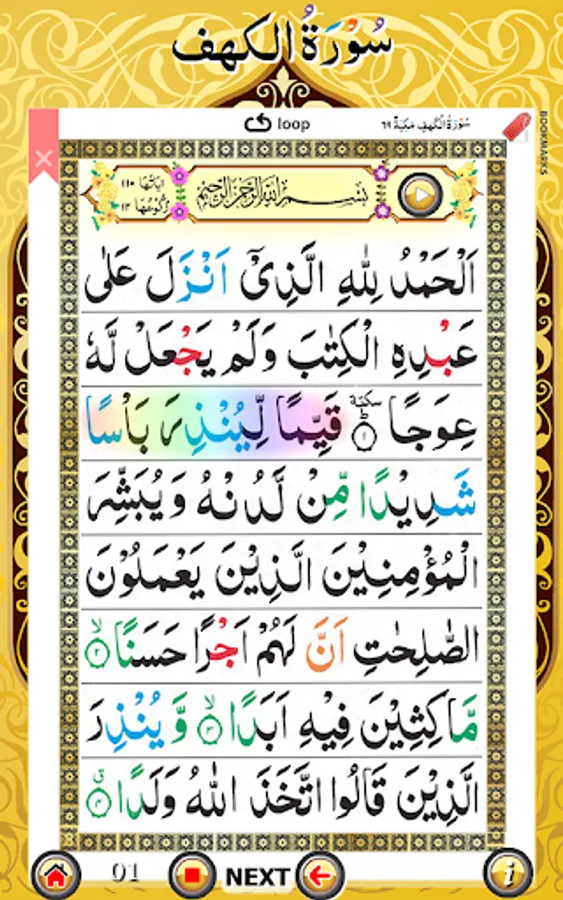 سُوْرَةُ الكهف
loop
سُوْرَةُ الْكَهْفِ مَكِّيَّةٌ ٦٩
BOOKMARKS
اٰيَاتُهَا ١١٠
رُكُوْعُهَا ١٢
بِسْمِ اللهِ الرَّحْمٰنِ الرَّحِيْمِ
اَلْحَمْدُ لِلّٰهِ الَّذِيْۤ اَنْزَلَ عَلٰى
عَبْدِهِ الْكِتٰبَ وَلَمْ يَجْعَلْ لَّهٗ
عِوَجًا ؕ سكتة ۝١ قَيِّمًا لِّيُنْذِرَ بَاْسًا
شَدِيْدًا مِّنْ لَّدُنْهُ وَيُبَشِّرَ
الْمُؤْمِنِيْنَ الَّذِيْنَ يَعْمَلُوْنَ
الصّٰلِحٰتِ اَنَّ لَهُمْ اَجْرًا حَسَنًا ۙ۝٢
مَّاكِثِيْنَ فِيْهِ اَبَدًا ۙ۝٣ وَّيُنْذِرَ
الَّذِيْنَ قَالُوا اتَّخَذَ اللهُ وَلَدًا ۗ۝٤
01 NEXT i